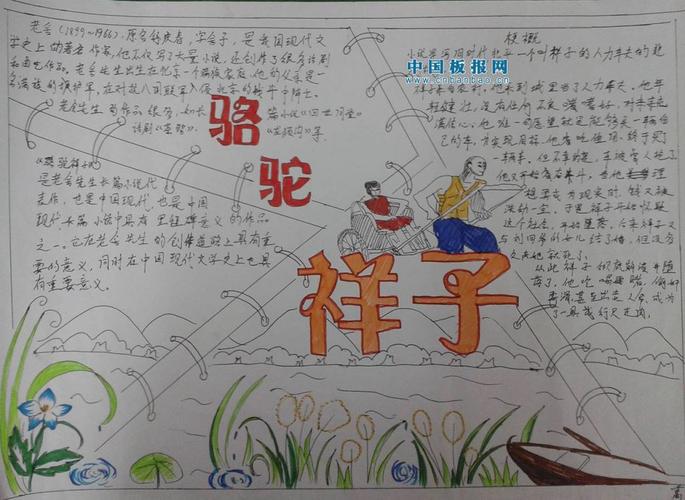 老舍(1899~1966),原名舒庆春,字舍予,是我国现代文
学史上的著名作家,他不仅写了大量小说,还创作了很多话剧
和曲艺作品。老舍先生出生在北京一个满族家庭,他的父亲是一
名满族的旗护军,在对抗八国联军入侵北京的战斗中阵亡。
老舍先生的作品很多,如长篇小说《四世同堂》
话剧《茶馆》、《龙须沟》等
骆
驼
祥子
《骆驼祥子》
是老舍先生长篇小说代
表作,也是中国现代也是中国
现代长篇小说中具有里程碑意义的作品
之一。它在老舍先生的创作道路上具有重
要的意义,同时在中国现代文学史上也具
有重要意义。
梗概
中国板报网
cnbanbao.com
小说描写旧时代北平一个叫祥子的人力车夫的悲
祥子来自农村,他来到城里当了人力车夫。他年
轻健壮,没有任何不良嗜好,对未来充
满信心。他唯一的愿望就是能够买一辆自
己的车,为实现目标,他省吃俭用,终于买了
一辆车,但不幸的是,车被官人抢了
他又开始
想要成为现实时,钱又被
洗劫一空,于是祥子开始怀疑
这个社会,开始堕落,后来祥子又
与刘四爷的女儿结了婚,但没多
久虎妞就死了。
从此祥子彻底
落了,他吃喝嫖赌,偷奸
耍滑,甚至出卖人命,成为
了一具残行尸走肉。